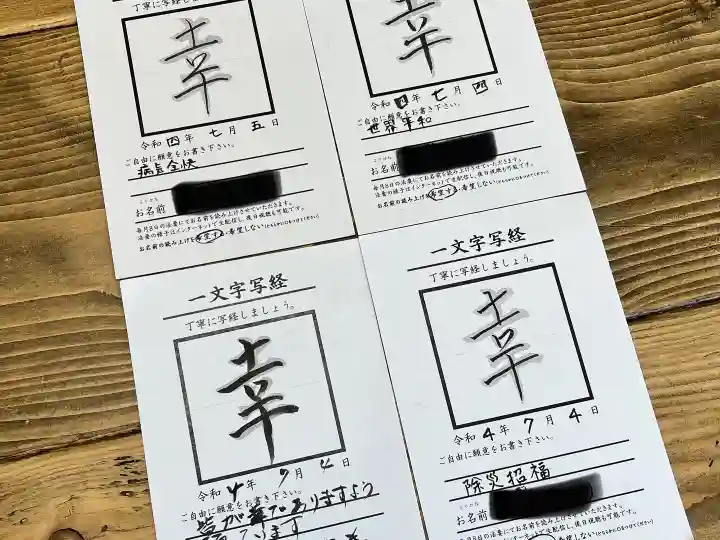 丁寧に写経しま
幸
令和四年七月五日
ご自由に願意をお書き下さい。
病気全快
お名前
毎月8日の法要にてお名前を読み上げさせていただきます。
法要の様子はインターネットで生配信し、後日視聴も可能です。
お名前の読み上げを(希望する・希望しない)
幸
令和四年七月四
ご自由に願意をお書き下さい。
世界平和
お名前
毎月8日の法要にてお名前を読み上げさせていただきます。
法要の様子はインターネットで生配信し、後日視聴も可能です。
お名前の読み上げを(希望する・希望しない)
一文字写経
丁寧に写経しましょう。
幸
令和4年7月4日
ご自由に願意をお書き下さい。
皆が幸でありますよう
一文字写経
丁寧に写経しましょう。
幸
令和4年7月4日
ご自由に願意をお書き下さい。
除災招福
お名前
毎月8日の法要にて
法要の様子はインターネットで生配信し、後日視聴も可能です。